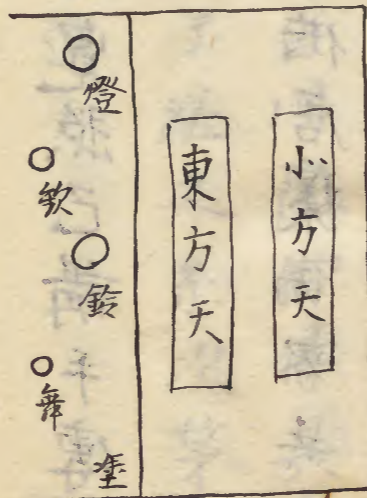 小方天
東方天
燈
鈴
舞
塗